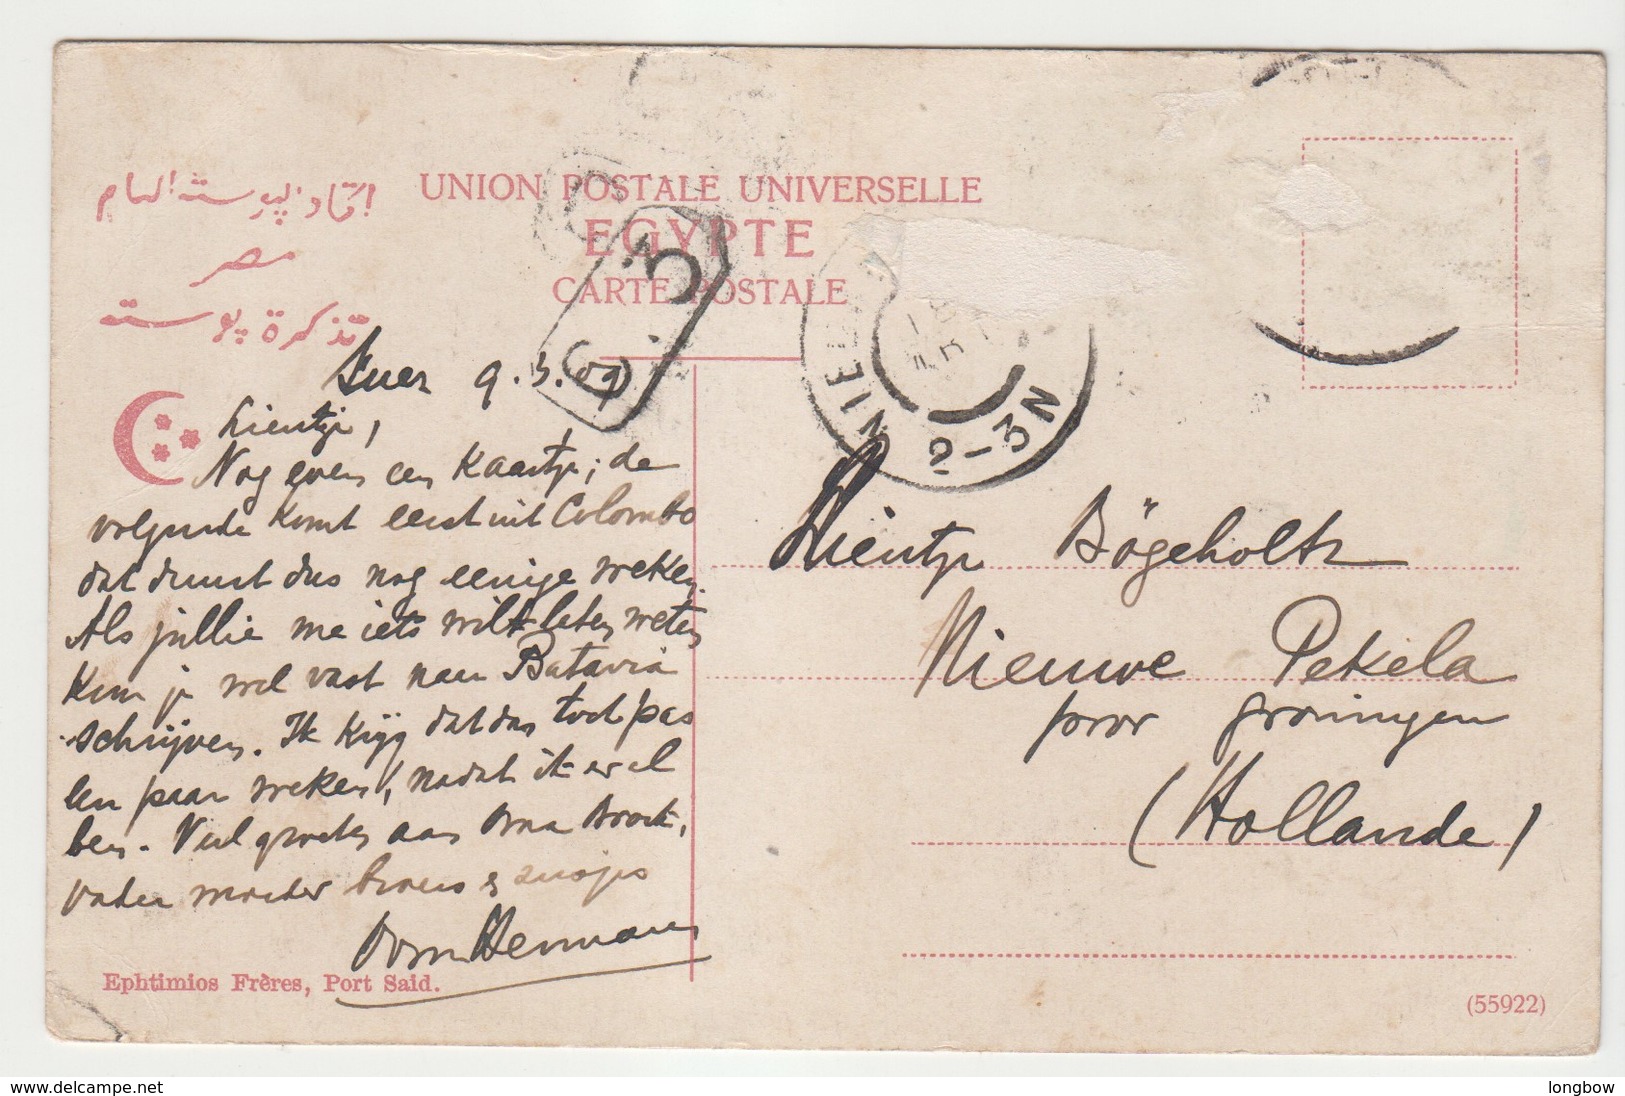 اتحاد البوستة العام
مصر
تذكرة بوستة
UNION POSTALE UNIVERSELLE
EGYPTE
CARTE POSTALE
Suez 9.3.09
Lientje,
Nog even een kaartje; de
volgende komt eerst uit Colombo
dat duurt dus nog eenige weken
Als jullie me iets wilt laten weten
kun je wel vast naar Batavia
schrijven. Ik krijg dat dus toch pas
een paar weken, nadat ik er al
ben. Veel groeten aan Oma
vader moeder broers & zusjes
Oom Hermann
Ephtimios Frères, Port Said.
NIE
2-3N
Lientje Bögeholtz
Nieuwe Pekela
prov Groningen
(Hollande)
(55922)
www.delcampe.net
longbow